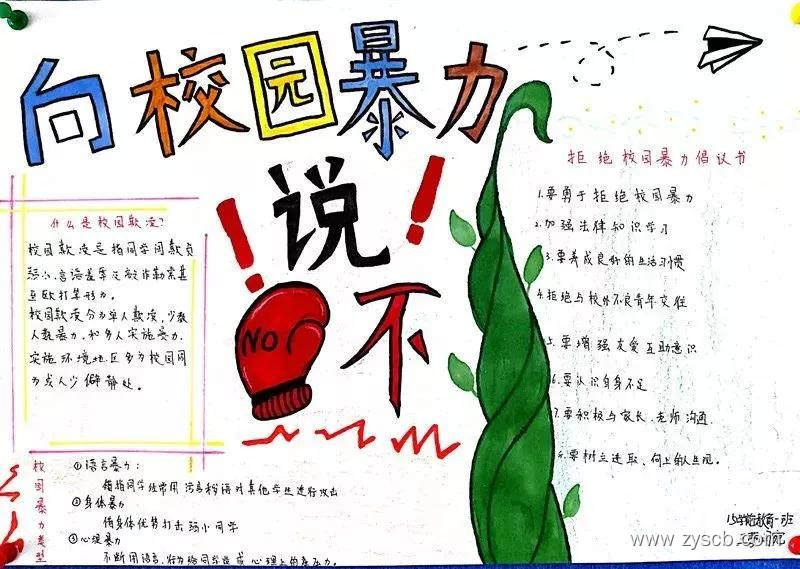 向校园暴力
说
不
NO
什么是校园欺凌?
校园欺凌是指同学间欺负
弱小、言语羞辱及敲诈勒索甚
至殴打等形为。
校园欺凌分为单人欺凌,少数
人数暴力,和多人实施暴力,
实施环境地区多为校园周
为或人少僻静处。
校园暴力类型
①语言暴力:
指同学经常用污言秽语对其他学生进行攻击
②身体暴力
借身体优势打击弱小同学
③心理暴力
不断用语言,行为给同学造成心理上的压力。
拒绝校园暴力倡议书
1.要勇于拒绝校园暴力
2.加强法律知识学习
3.要养成良好的生活习惯
4.拒绝与校外不良青年交往
5.要增强友爱互助意识
6.要认识自身不足
7.要积极与家长、老师沟通.
8.要树立进取、向上的人生观。
一班
www.zyscb.com